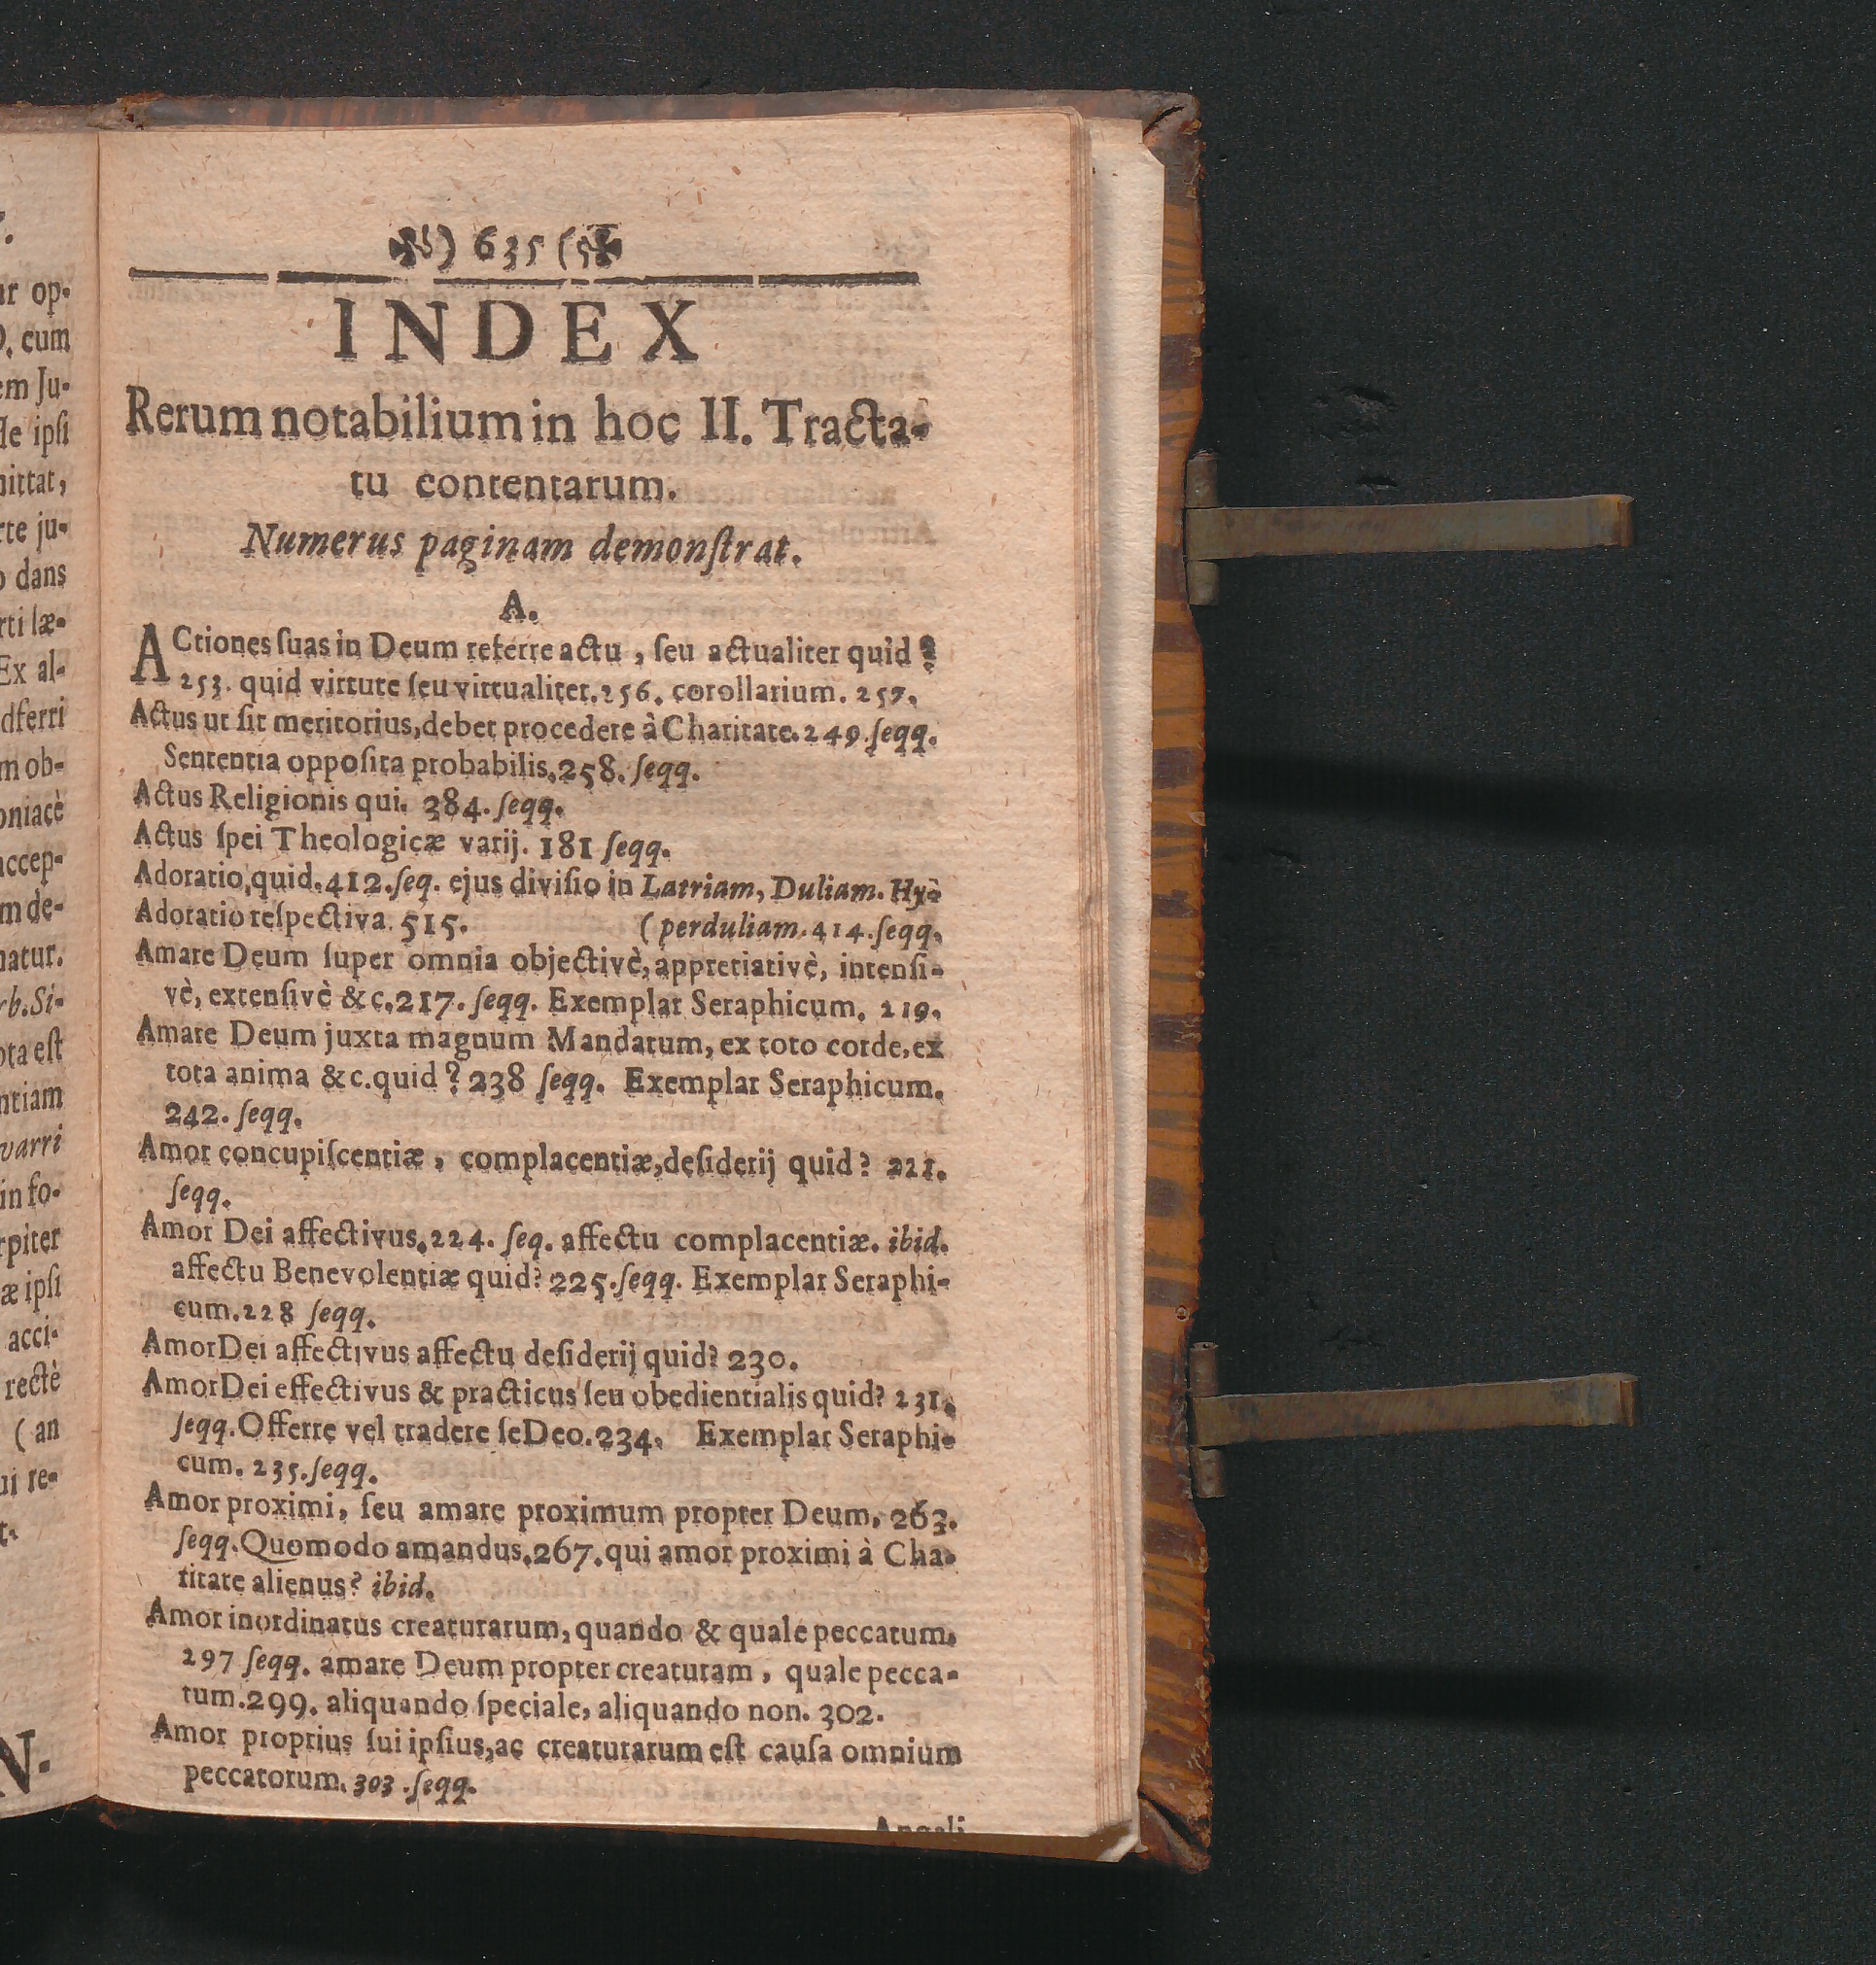 635
INDEX
Rerum notabilium in hoc II. Tracta-
tu contentarum.
Numerus paginam demonſtrat.
A.
ACtiones ſuas in Deum referre actu, ſeu actualiter quid?
253. quid virtute ſeu virtualiter. 256. corollarium. 257.
Actus ut ſit meritorius, debet procedere à Charitate. 249. ſeqq.
Sententia oppoſita probabilis. 258. ſeqq.
Actus Religionis qui. 284. ſeqq.
Actus ſpei Theologicæ varij. 181 ſeqq.
Adoratio, quid. 412. ſeq. ejus diviſio in Latriam, Duliam. Hy-
Adoratio reſpectiva. 515. (perduliam. 414. ſeqq.
Amare Deum ſuper omnia objectivè, appretiativè, intenſi-
vè, extenſivè &c. 217. ſeqq. Exemplar Seraphicum. 219.
Amare Deum juxta magnum Mandatum, ex toto corde, ex
tota anima &c. quid? 238 ſeqq. Exemplar Seraphicum.
242. ſeqq.
Amor concupiſcentiæ, complacentiæ, deſiderij quid? 221.
ſeqq.
Amor Dei affectivus. 224. ſeq. affectu complacentiæ. ibid.
affectu Benevolentiæ quid? 225. ſeqq. Exemplar Seraphi-
cum. 228 ſeqq.
Amor Dei affectivus affectu deſiderij quid? 230.
Amor Dei effectivus & practicus ſeu obedientialis quid? 231.
ſeqq. Offerre vel tradere ſe Deo. 234. Exemplar Seraphi-
cum. 235. ſeqq.
Amor proximi, ſeu amare proximum propter Deum. 263.
ſeqq. Quomodo amandus. 267. qui amor proximi à Cha-
ritate alienus? ibid.
Amor inordinatus creaturarum, quando & quale peccatum.
297 ſeqq. amare Deum propter creaturam, quale pecca-
tum. 299. aliquando ſpeciale, aliquando non. 302.
Amor proprius ſui ipſius, ac creaturarum eſt cauſa omnium
peccatorum. 303. ſeqq.
Angeli